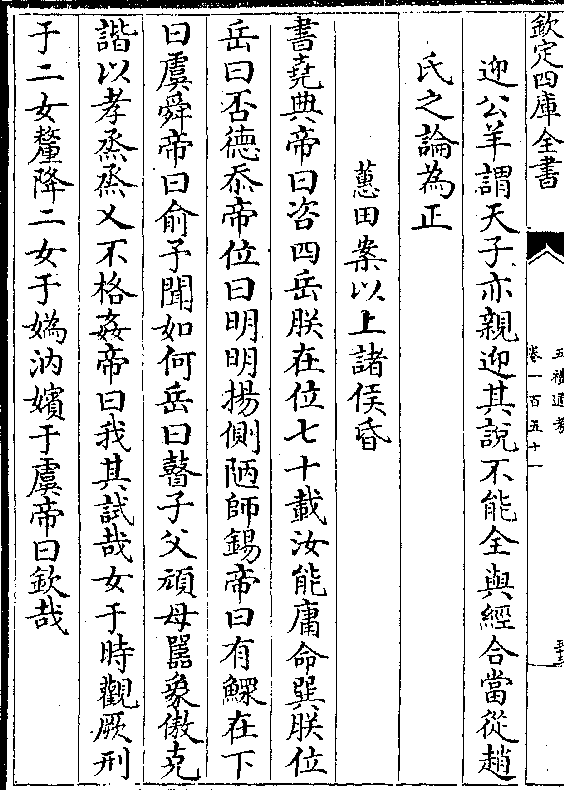 欽定四庫全書
五禮通考
卷一百五十一
迎公羊謂天子亦親迎其說不能全與經合當從趙
氏之論為正
蕙田案以上諸侯昏
書堯典帝曰咨四岳朕在位七十載汝能庸命巽朕位
岳曰否德忝帝位曰明明揚側陋師錫帝曰有鰥在下
曰虞舜帝曰俞予聞如何岳曰瞽子父頑母嚚象傲克
諧以孝烝烝乂不格姦帝曰我其試哉女于時觀厥刑
于二女釐降二女于媯汭嬪于虞帝曰欽哉